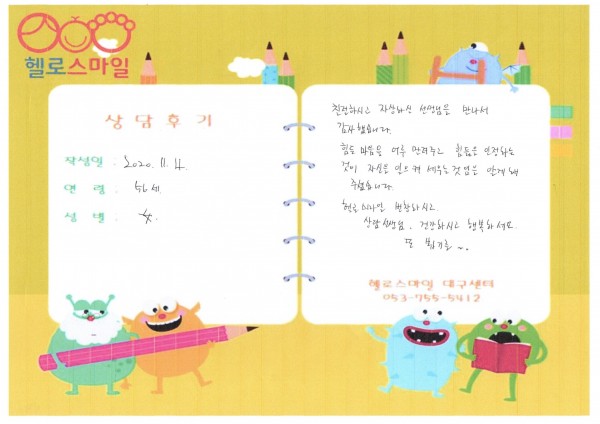 헬로스마일
상담후기
작성일 : 2020. 11. 4.
연 령 :
성 별 : 女.
친절하시고 자상하신 선생님을 만나서
감사했습니다.
힘든 마음을 어루 만져주고 힘듦은 인정하는
것이 자신을 일으켜 세우는 것 임을 알게 해
주셨습니다.
헬로스마일 번창하시고
상담선생님, 건강하시고 행복하세요.
또 뵙기를 ~.
헬로스마일 대구센터
053-755-5412